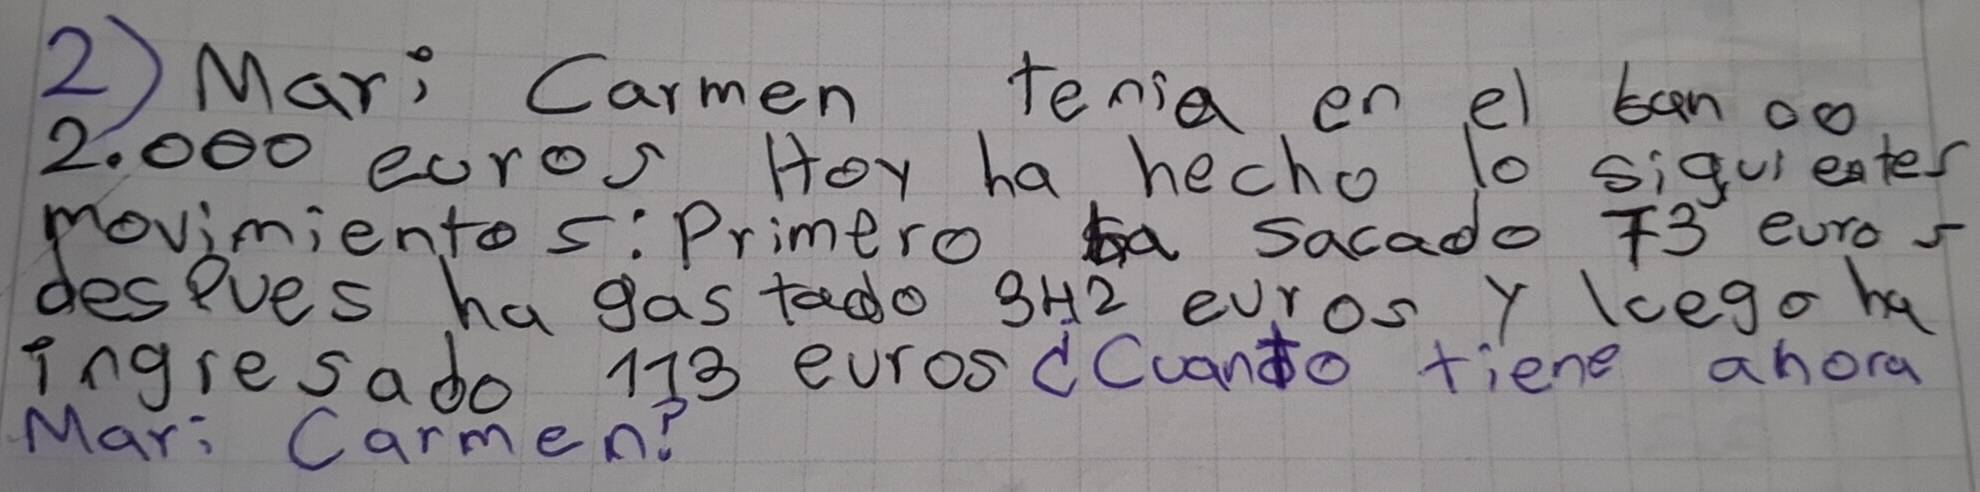 2) Mari Carmen tenia en el banco
2.000 euros Hoy ha hecho lo siguientes
movimientos: Primero ha sacado 73 euros
despues ha gastado 342 euros y luego ha
ingresado 113 euros ¿Cuanto tiene ahora
Mari Carmen?